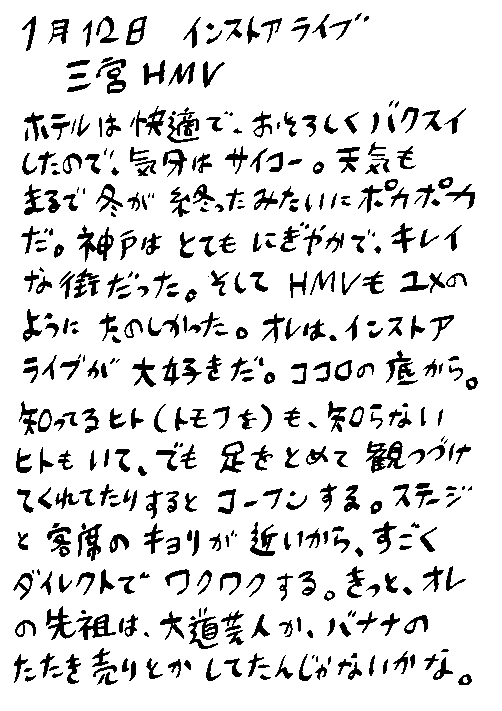 1月12日 インストアライブ
三宮HMV
ホテルは快適で、おそろしくバクスイ
したので、気分はサイコー。天気も
まるで冬が終ったみたいにポカポカ
だ。神戸はとてもにぎやかで、キレイ
な街だった。そしてHMVもユメの
ようにたのしかった。オレは、インストア
ライブが大好きだ。ココロの底から。
知ってるヒト(トモフを)も、知らない
ヒトもいて、でも足をとめて観つづけ
てくれてたりするとコーフンする。ステージ
と客席のキョリが近いから、すごく
ダイレクトでワクワクする。きっと、オレ
の先祖は、大道芸人か、バナナの
たたき売りとかしてたんじゃないかな。